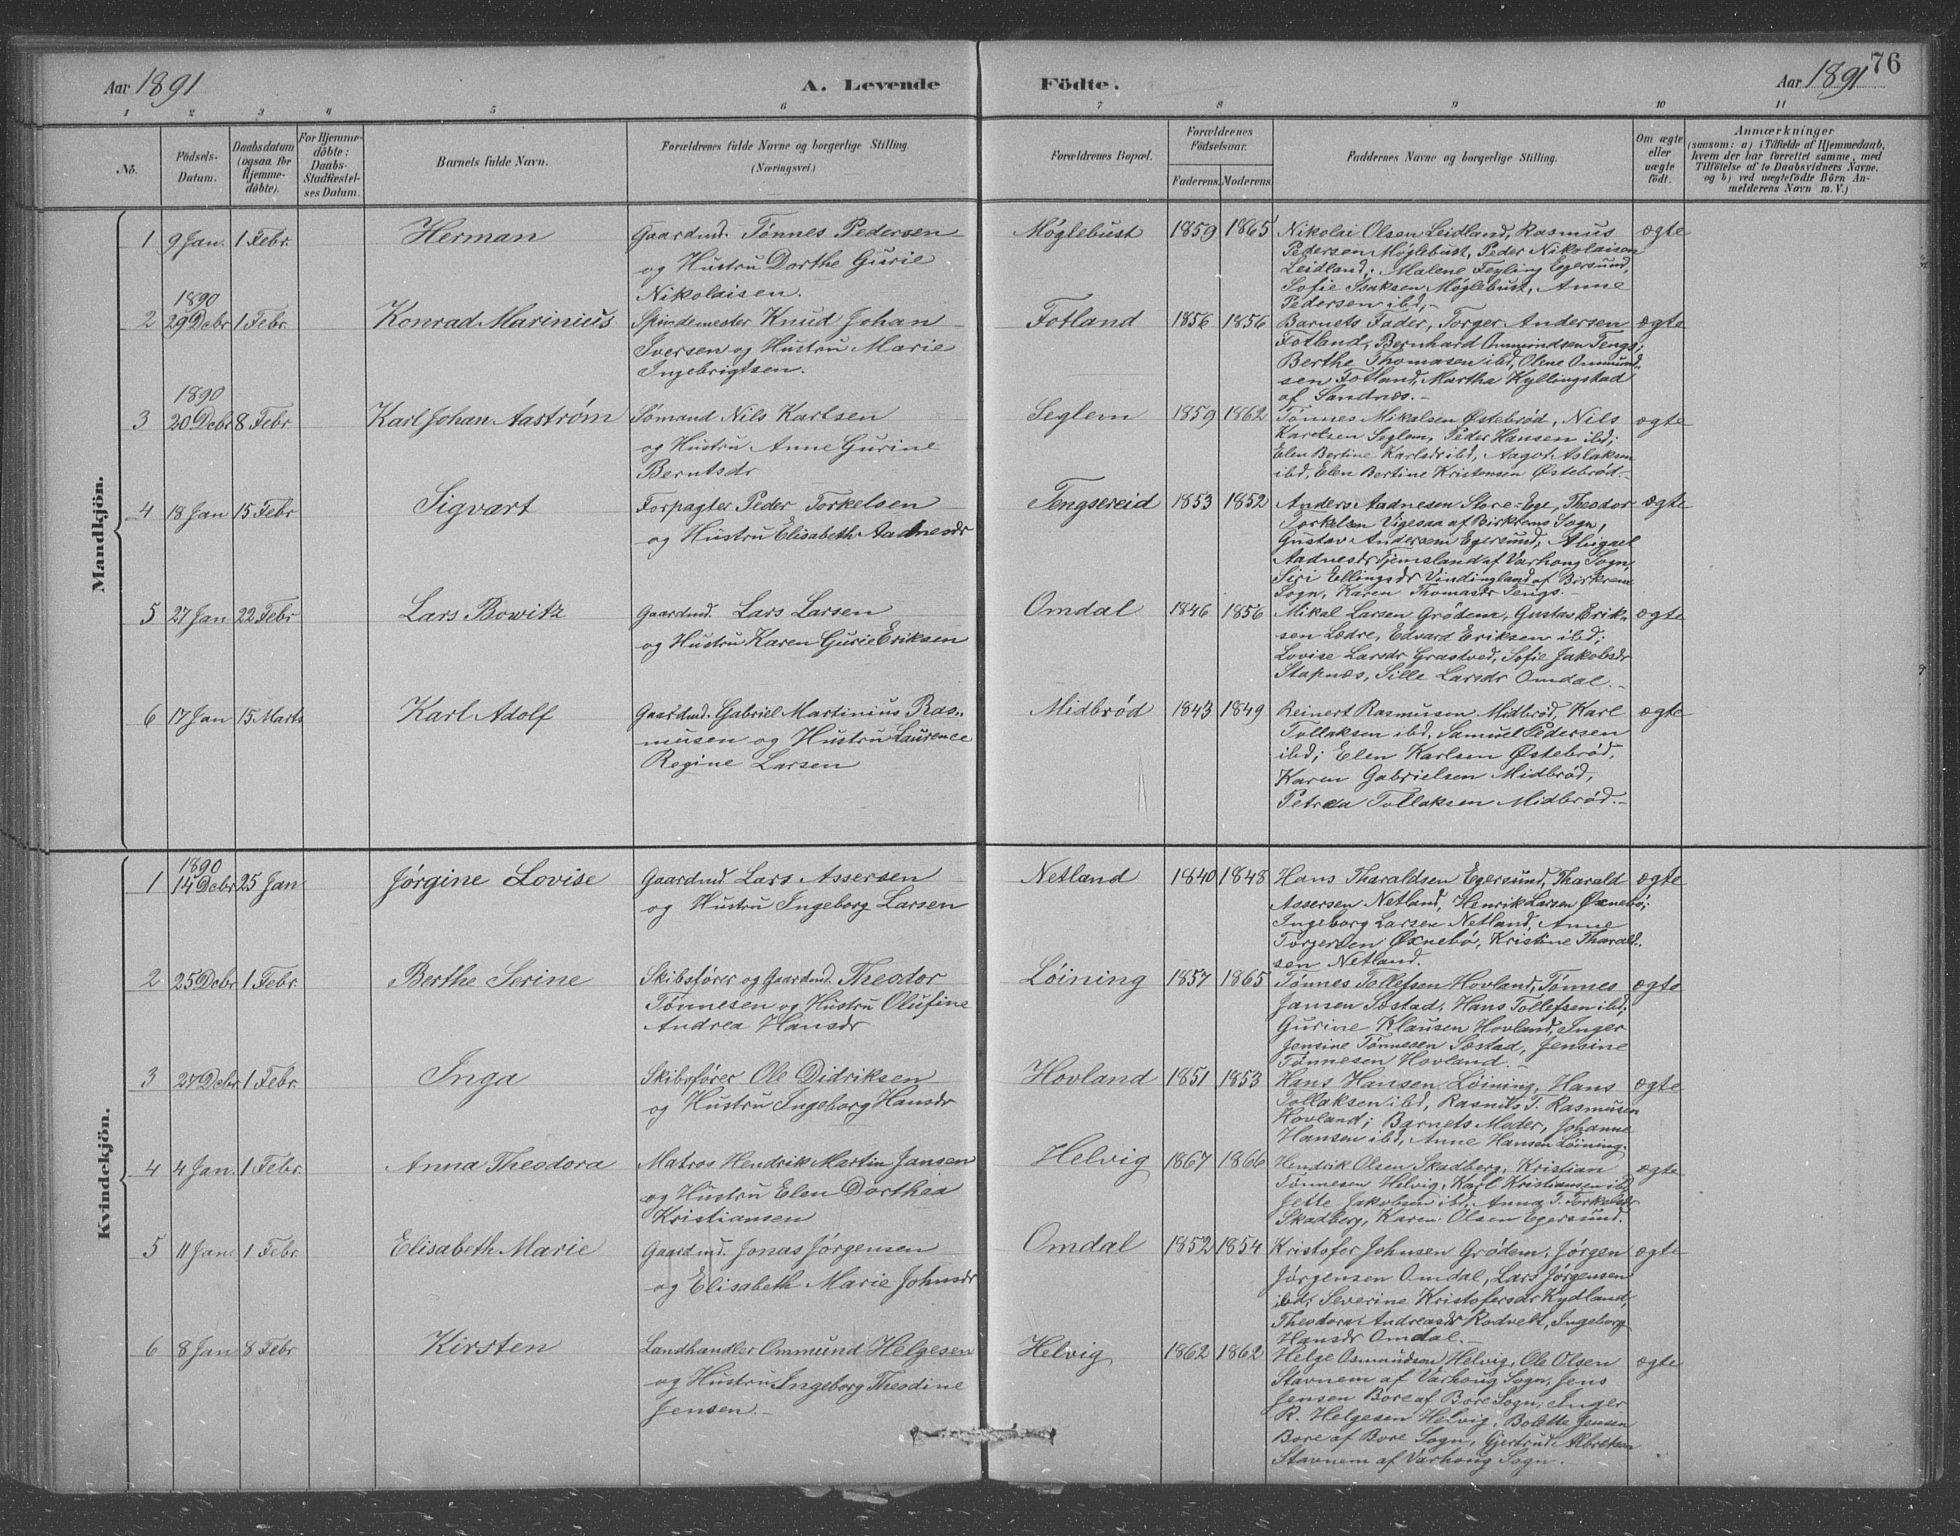 Aar 1891
A. Levende
Födte.
Aar 1891
76
1 2 3 4 5 6 7 8 9 10 11
No.
Födsels-
Datum.
Daabsdatum
(ogsaa for
Hjemme-
döbte).
For Hjemme-
döbte:
Daabs-
Stadfæstel-
ses Datum.
Barnets fulde Navn.
Forældrenes fulde Navne og borgerlige Stilling.
(Næringsvei.)
Forældrenes Bopæl.
Forældrenes
Födselsaar.
Faderens. Moderens.
Faddernes Navne og borgerlige Stilling.
Om ægte
eller
uægte
födt.
Anmærkninger
(saasom: a) i Tilfælde af Hjemmedaab,
hvem der har forrettet samme, med
Tilföielse af to Daabsvidners Navne.
og b) ved uægtefödte Börn An-
melderens Navn m. V.)
Mandkjön.
1 9 Jan. 1 Febr. Herman
Gaardmd. Tønnes Pedersen
og Hustru Dorthe Gurie
Nikolaisen.
Møglebust 1859 1865
Nikolai Olsen Leidland, Rasmus
Pedersen Møglebust, Peder Nikolaisen
Leidland; Malene Feyling Egersund,
Sofie Isaksen Møglebust, Anne
Pedersen ibd.-
ægte
1890
2 29 Debr 1 Febr. Konrad Marinius
Spindemester Knud Johan
Iversen og Hustru Marie
Ingebrigtsen.
Fotland 1856 1856
Barnets Fader, Torger Andersen
Fotland, Bernhard Ommundsen Tengs;
Berthe Thomasen ibd, Olene Ommund-
sen Fotland, Martha Kyllingstad
af Sandnæs.-
ægte
1890
3 20 Debr 8 Febr Karl Johan Aastrøm
Sømand Nils Karlsen
og Hustru Anne Gurine
Berntsdr
Seglem 1859 1862
Tønnes Mikalsen Østebrød, Nils
Karelsen Seglem, Peder Hansen ibd;
Elen Bertine Karlsdr ibd, Aagot Aslaksen
ibd, Elen Bertine Kristensen Østebrød.-
ægte
4 18 Jan 15 Febr Sigvart
Forpagter Peder Torkelsen
og Hustru Elisabeth Aadnesdr
Tengsereid 1853 1852
Anders Aadnesen Store-Ege, Theodor
Torkelsen Vigesaa af Birkrems Sogn,
Gustav Andersen Egersund; Abigael
Aadnesdr Tjemsland af Varhoug Sogn,
Siri Ellingsdr Vindingland af Birkrem
Sogn, Karen Thomasdr Tengs.-
ægte
5 27 Jan 22 Febr Lars Bowitz
Gaardmd. Lars Larsen
og Hustru Karen Gurie Eriksen
Omdal 1846 1856
Mikal Larsen Grødem, Gustav Erik-
sen Lædre, Edvard Eriksen ibd;
Lovise Larsdr Grastved, Sofie Jakobsdr
Stapnæs, Sille Larsdr Omdal.-
ægte
6 17 Jan 15 Marts Karl Adolf
Gaardmd. Gabriel Martinius Ras-
musen og Hustru Laurence
Regine Larsen
Midbrød 1843 1849
Reinert Rasmusen Midbrød, Karl
Tollaksen ibd, Samuel Pedersen
ibd; Elen Karlsen Østebrød,
Karen Gabrielsen Midbrød,
Petrea Tollaksen Midbrød.-
ægte
Kvindekjön.
1890
1 14 Debr 25 Jan Jørgine Lovise
Gaardmd Lars Assersen
og Hustru Ingeborg Larsen
Netland 1840 1848
Hans Tharaldsen Egersund, Tharald
Assersen Netland, Henrik Larsen Øxnebø;
Ingeborg Larsen Netland, Anne
Torgersen Øxnebø, Kristine Tharald-
sen Netland.
ægte
2 25 Debr 1 Febr. Berthe Serine
Skibsfører og Gaardmd. Theodor
Tønnesen og Hustru Olufine
Andrea Hansdr
Løining 1857 1865
Tønnes Tollefsen Hovland, Tønnes
Jansen Søstad, Hans Tollefsen ibd;
Gurine Klausen Hovland, Inger
Jensine Tønnesen Søstad, Jensine
Tønnesen Hovland.-
ægte
3 27 Debr 1 Febr. Inga
Skibsfører Ole Didriksen
og Hustru Ingeborg Hansdr
Hovland 1851 1853
Hans Hansen Løining, Hans
Tollaksen ibd, Rasmus T. Rasmusen
Hovland; Barnets Moder, Johanne
Hansen ibd, Anne Hansen Løining.
ægte
4 4 Jan. 1 Febr. Anna Theodora
Matros Hendrik Martin Jansen
og Hustru Elen Dorthea
Kristiansen
Helvig 1867 1866
Hendrik Olsen Skadberg, Kristian
Tønnesen Helvig, Karl Kristiansen ibd
Jette Jakobsen ibd, Anna T. Torkelsdr
Skadberg, Karen Olsen Egersund.
ægte
5 11 Jan. 1 Febr. Elisabeth Marie
Gaardmd. Jonas Jørgensen
og Elisabeth Marie Johnsdr
Omdal 1852 1854
Kristofer Johnsen Grødem, Jørgen
Jørgensen Omdal, Lars Jørgensen
ibd; Severine Kristofersdr Kydland,
Theodora Andreasdr Rodvelt, Ingeborg
Hansdr Omdal.-
ægte
6 8 Jan 8 Febr Kirsten
Landhandler Ommund Helgesen
og Hustru Ingeborg Theodine
Jensen.-
Helvig 1862 1862
Helge Osmundsen Helvig, Ole Olsen
Stavnem af Varhoug Sogn, Jens
Jensen Bore af Bore Sogn, Inger
R. Helgesen Helvig, Bolette Jensen
Bore af Bore Sogn, Gjertrud
Stavnem af Varhoug Sogn.
ægte